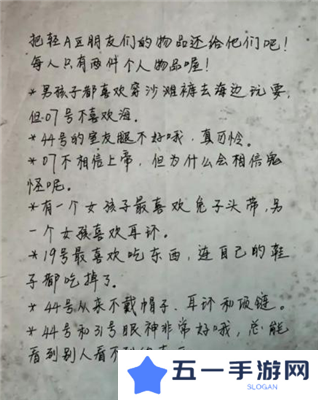 把轻A区朋友们的物品还给他们吧！
每人只有两件个人物品喔！
*男孩子都喜欢穿沙滩裤去海边玩耍，
但07号不喜欢海。
*44号的室友腿不好哦，真可怜。
*07不相信上帝，但为什么会相信鬼
怪呢。
*有一个女孩子最喜欢兔子头带，另
一个女孩喜欢耳环。
*19号最喜欢吃东西，连自己的鞋
子都吃掉了。
*44号从来不戴帽子、耳环和项链。
*44号和31号眼神非常好哦，总能
看到别人看不到的东西
五一手游网
SLOGAN